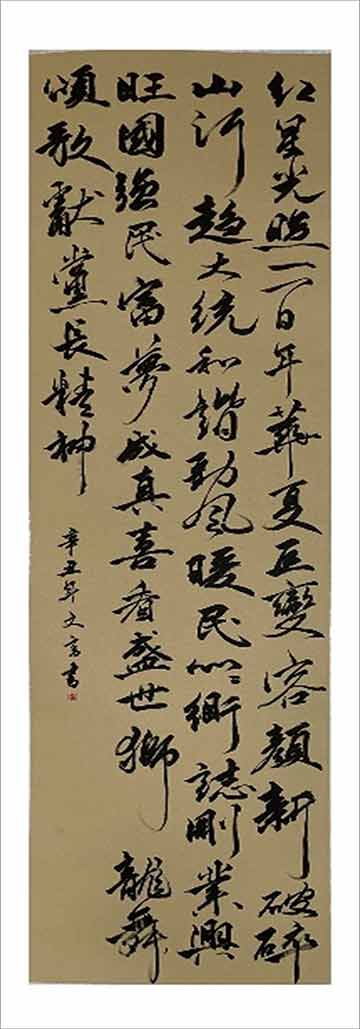 红星光照一百年華夏巨變容顏新破碎
山河趋大统和諧勁風暖民心誌業興
旺國強民富夢成真喜看盛世獅龍舞
頌歌獻黨長精神
辛丑年文書